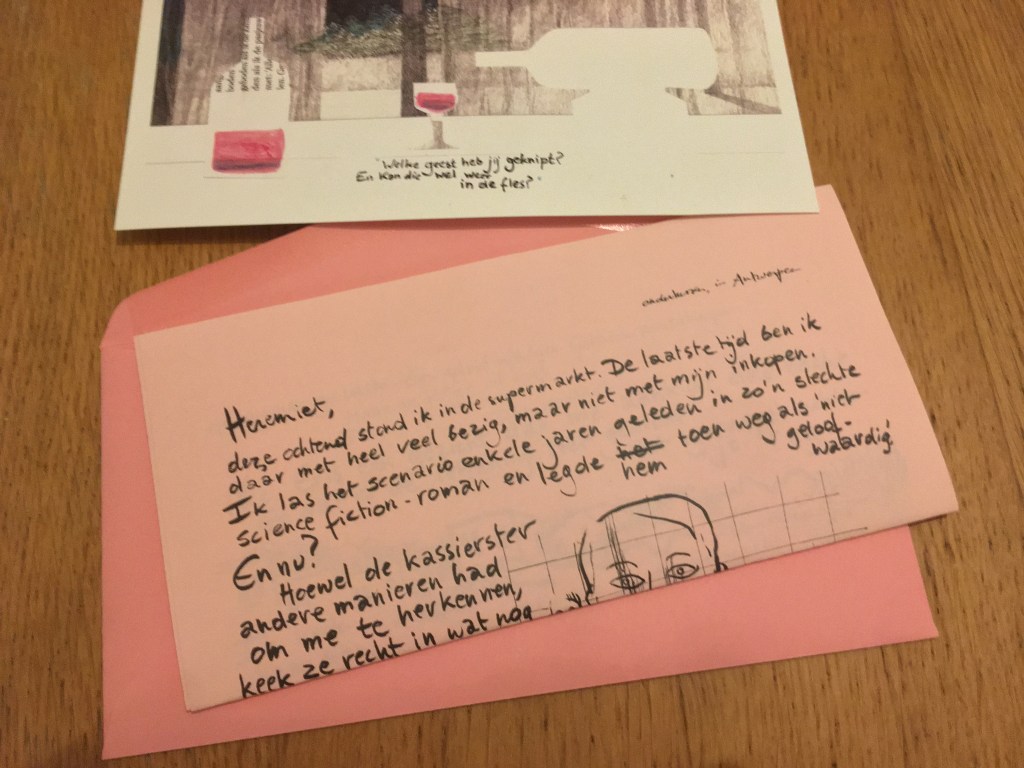 geboden
den als ik de pagina's
"Welke geest heb jij geknipt?
En kan die wel weer
in de fles?"
in Antwerpen
Heremiet,
deze ochtend stond ik in de supermarkt. De laatste tijd ben ik
daar met heel veel bezig, maar niet met mijn inkopen.
Ik las het scenario enkele jaren geleden in zo'n slechte
science fiction-roman en legde het hem toen weg als 'niet
geloof-
waardig'
En nu?
Hoewel de kassierster
andere manieren had
om me te herkennen,
keek ze recht in wat nog